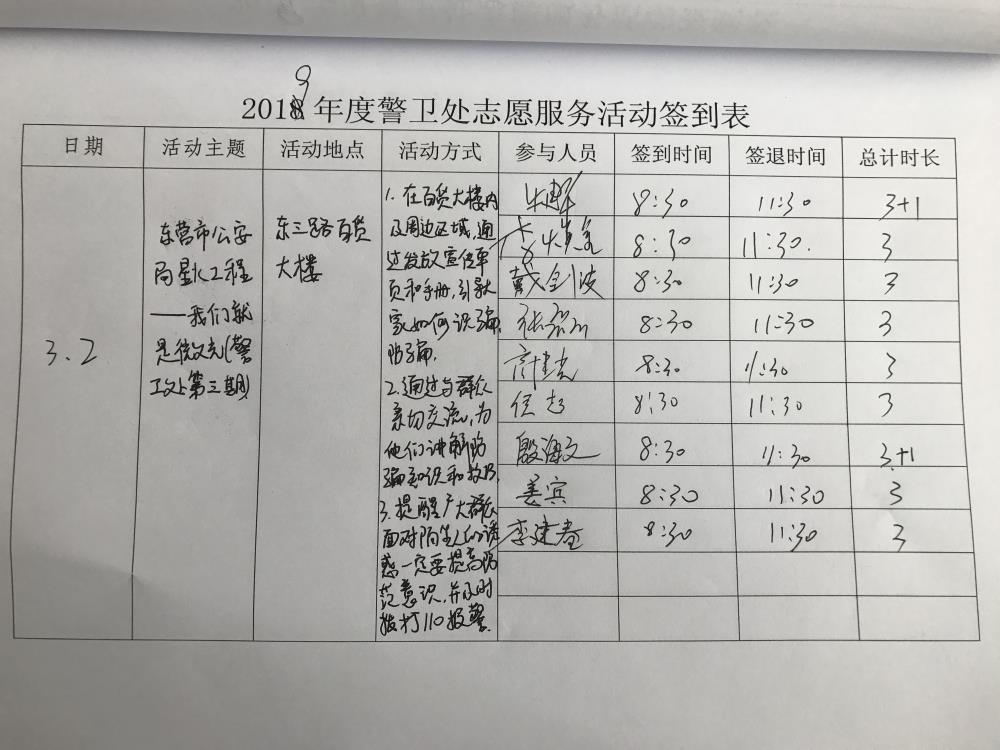 2019年度警卫处志愿服务活动签到表
日期 活动主题 活动地点 活动方式 参与人员 签到时间 签退时间 总计时长
3.2
东营市公安
局星火工程
——我们就
是微光(警
卫处第三期)
东三路百货
大楼
1.在百货大楼内
及周边区域,通
过发放宣传单
页和手册,引导大
家如何识骗,
防骗.
2.通过与群众
亲切交流,为
他们讲解防
骗知识和技巧.
3.提醒广大群众
面对陌生人的诱
惑一定要提高防
范意识,并及时
拨打110报警.
8:30 11:30 3+1
8:30 11:30. 3
戴剑波 8:30 11:30 3
8:30 11:30 3
8:30 11:30 3
8:30 11:30 3
殷海文 8:30 11:30 3+1
姜宾 8:30 11:30 3
李建奎 8:30 11:30 3